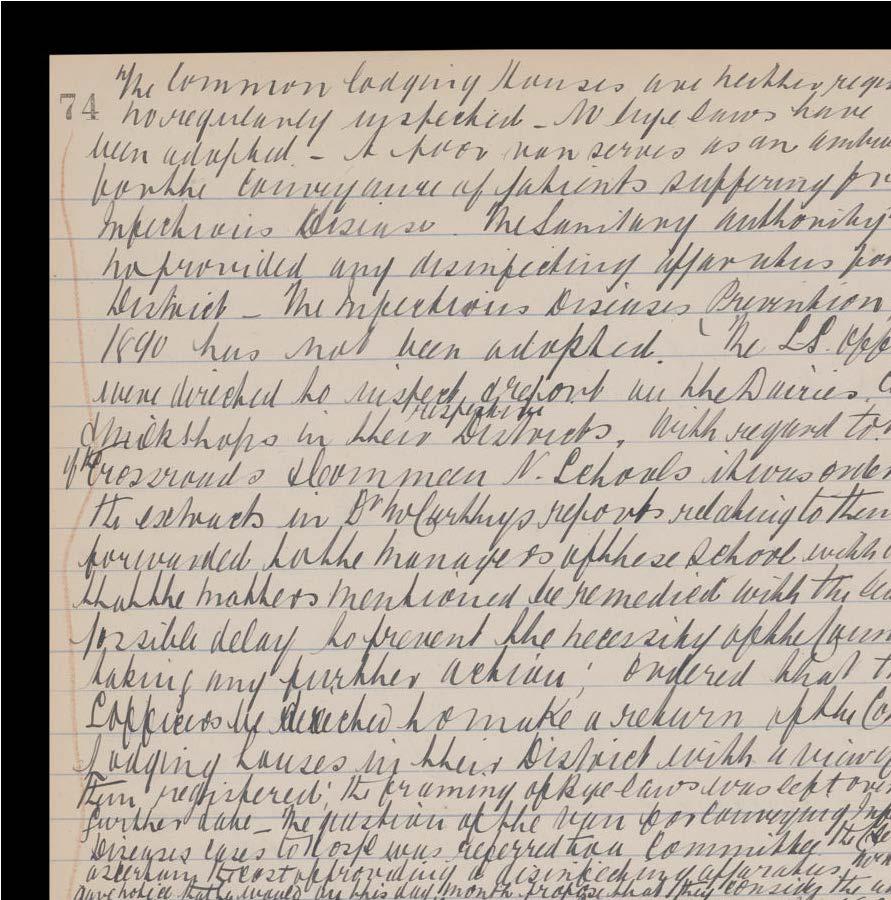 74 "The Common Lodging Houses are neither regis
nor regularly inspected _ No bye laws have
been adopted _ A poor van serves as an ambu
for the conveyance of patients suffering fr
Infectious Disease. The Sanitary Authority
no provided any disinfecting apparatus for
District _ The Infectious Diseases Prevention
1890 has not been adopted. The LS. Off
were directed to inspect & report on the Dairies, C
respective
& Milkshops in their Districts. With regard to
of the Crossroads & Commeen N. Schools it was order
the extracts in Dr McCarthys reports relating to them
forwarded to the Managers of these School with
that the matters mentioned be remedied with the lea
possible delay to prevent the necessity of the Coun
taking any further action; ordered that t
L officers be directed to make a return of the Co
Lodging houses in their District with a view of
them registered; the framing of Bye laws was left over
further date _ The question of the van for conveying Inf
Diseases cases to Hospl was referred to a Committee the
ascertain the cost of providing a disinfecting apparatus,
gave notice that he would on this day month propose that they consider the